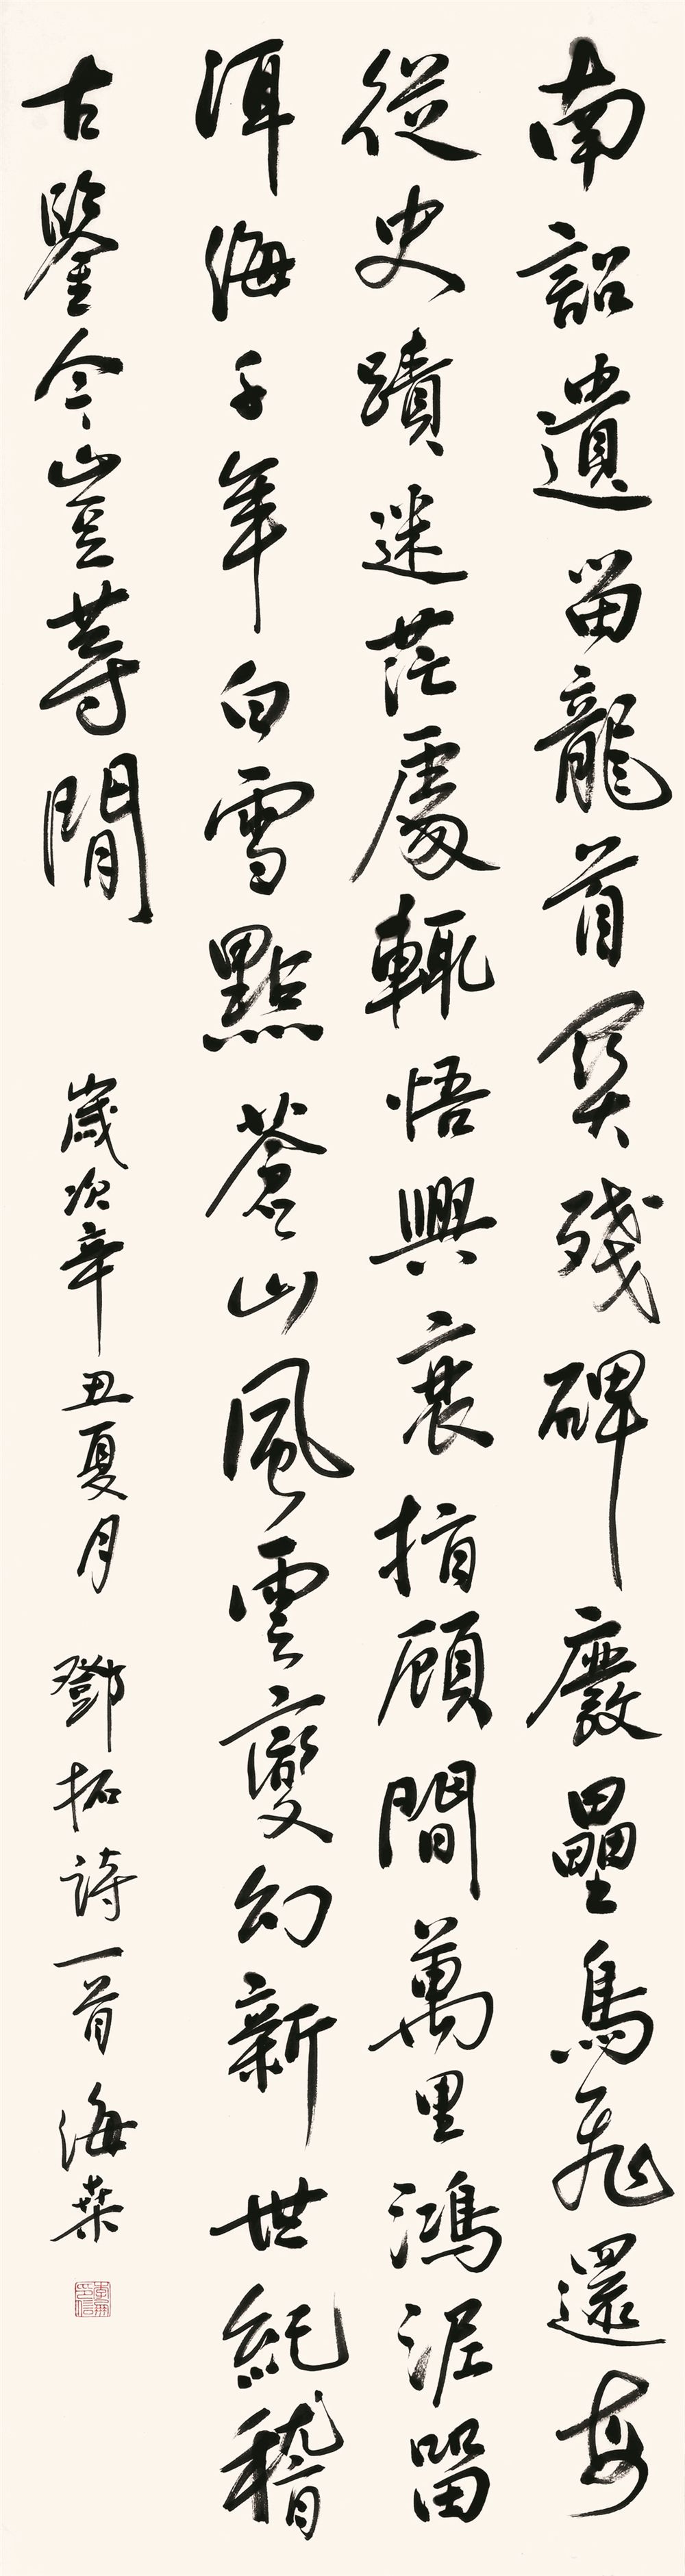 南詔遺留龍首關殘碑廢壘鳥飛還每
從史蹟迷茫處輒悟興衰指顧間萬里鴻泥留
洱海千年白雪點蒼山風雲變幻新世紀稽
古鑒今豈等閒 歲次辛丑夏月 鄧拓詩一首 海葉